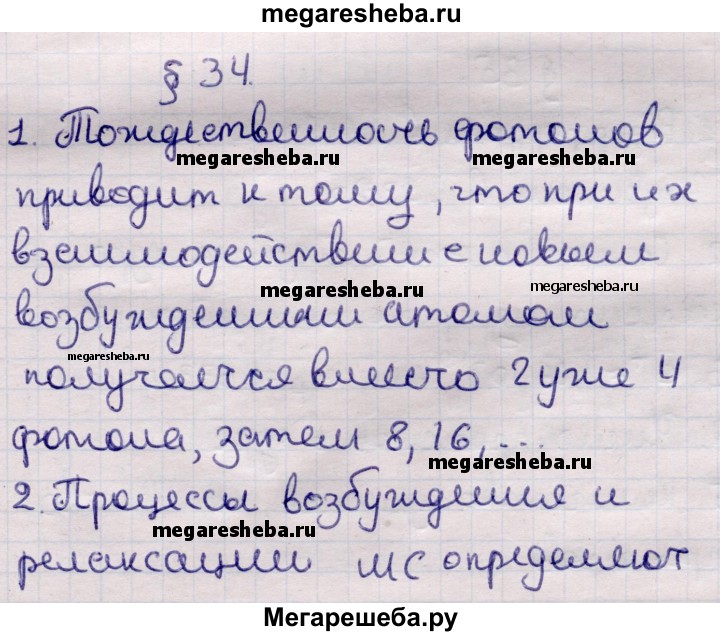 megaresheba.ru
§ 34.
1. Тождественность фотонов
megaresheba.ru megaresheba.ru
приводит к тому, что при их
взаимодействии с новыми
megaresheba.ru megaresheba.ru
возбужденными атомами
megaresheba.ru
получается вместо 2 уже 4
фотона, затем 8, 16, ...
megaresheba.ru
2. Процессы возбуждения и
megaresheba.ru
релаксации определяют
Мегарешеба.ру